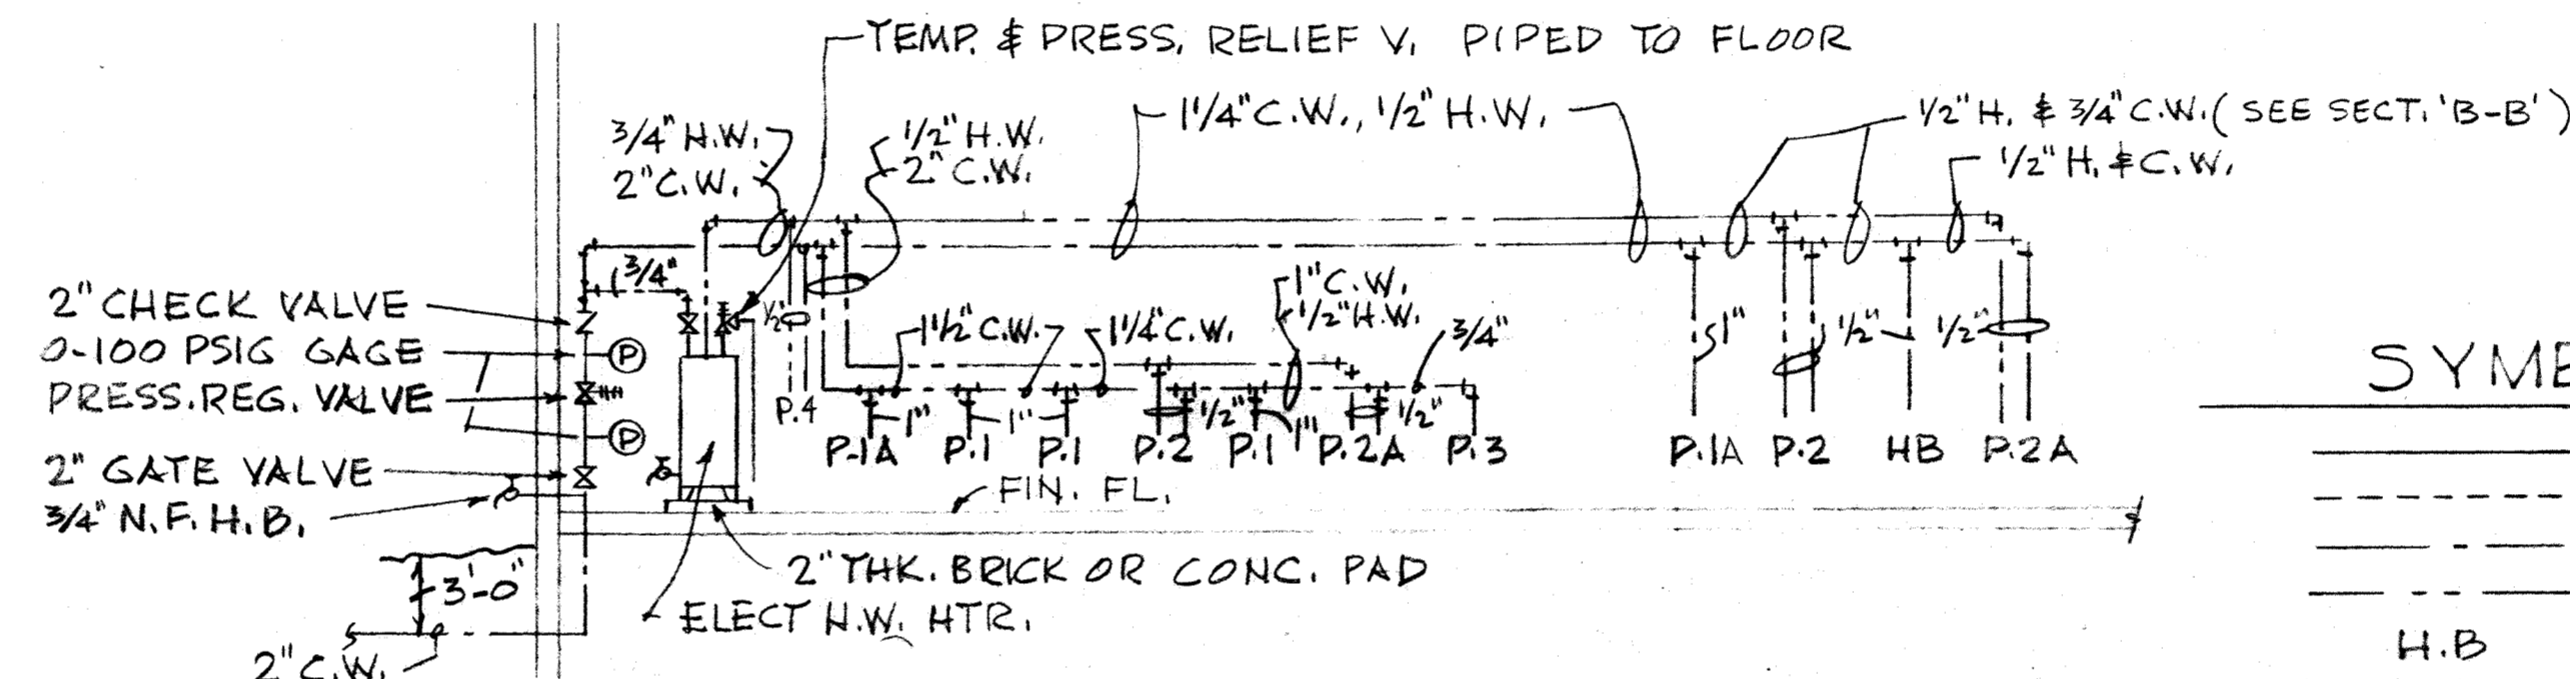 TEMP. & PRESS. RELIEF V. PIPED TO FLOOR
3/4" H.W.
2" C.W.
1/2" H.W.
2" C.W.
1 1/4" C.W., 1/2" H.W.
1/2" H. & 3/4" C.W. (SEE SECT. 'B-B')
1/2" H. & C.W.
3/4"
2" CHECK VALVE
0-100 PSIG GAGE
PRESS. REG. VALVE
2" GATE VALVE
3/4" N.F.H.B.
P
P
1/2"
1 1/2" C.W.
1 1/4" C.W.
1" C.W.
1/2" H.W.
3/4"
1"
1/2"
1/2"
P.4
1"
1"
1/2"
1"
1/2"
P.1A
P.1
P.1
P.2
P.1
P.2A
P.3
P.1A
P.2
HB
P.2A
FIN. FL.
2" THK. BRICK OR CONC. PAD
ELECT H.W. HTR.
3'-0"
2" C.W.
SYMB
H.B